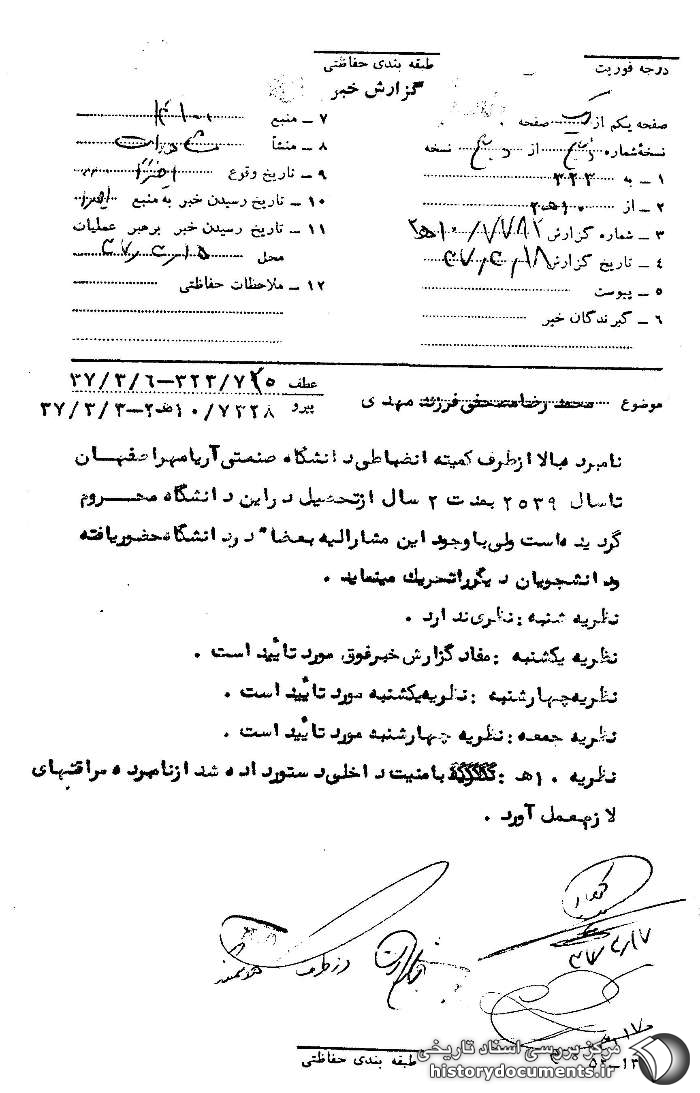 درجه فوریت
طبقه بندی حفاظتی
گزارش خبر
صفحه یکم از یک صفحه
نسخهٔ شماره از نسخه
۱ – به ۳۲۳
۲ – از ۱۰هـ۲
۳ – شماره گزارش ۲هـ۱۰/۷۷۸۲
۴ – تاریخ گزارش
۵ – پیوست
۶ – گیرندگان خبر
۷ – منبع
۸ – منشأ
۹ – تاریخ وقوع
۱۰ – تاریخ رسیدن خبر به منبع
۱۱ – تاریخ رسیدن خبر برهبر عملیات
محل
۱۲ – ملاحظات حفاظتی
موضوع محمد رضا مصحفی فرزند مهدی
عطف ۳۷/۳/۶–۳۲۳/۷
پیرو ۳۷/۳/۳–۲هـ۱۰/۷۳۲۸
نامبرده بالا از طرف کمیته انضباطی دانشگاه صنعتی آریامهر اصفهان
تا سال ۲۵۳۹ بمدت ۲ سال از تحصیل در این دانشگاه محروم
گردیده است ولی با وجود این مشارالیه بعضاً در دانشگاه حضور یافته
ودانشجویان دیگر را تحریک مینماید .
نظریه شنبه : نظری ندارد .
نظریه یکشنبه : مفاد گزارش خبر فوق مورد تأیید است .
نظریه چهارشنبه : نظریه یکشنبه مورد تأیید است .
نظریه جمعه : نظریه چهارشنبه مورد تأیید است .
نظریه ۱۰هـ : بامنیت داخلی دستور داده شد از نامبرده مراقبتهای
لازم بعمل آورد .
از طرف
طبقه بندی حفاظتی
مرکز بررسی اسناد تاریخی
historydocuments.ir